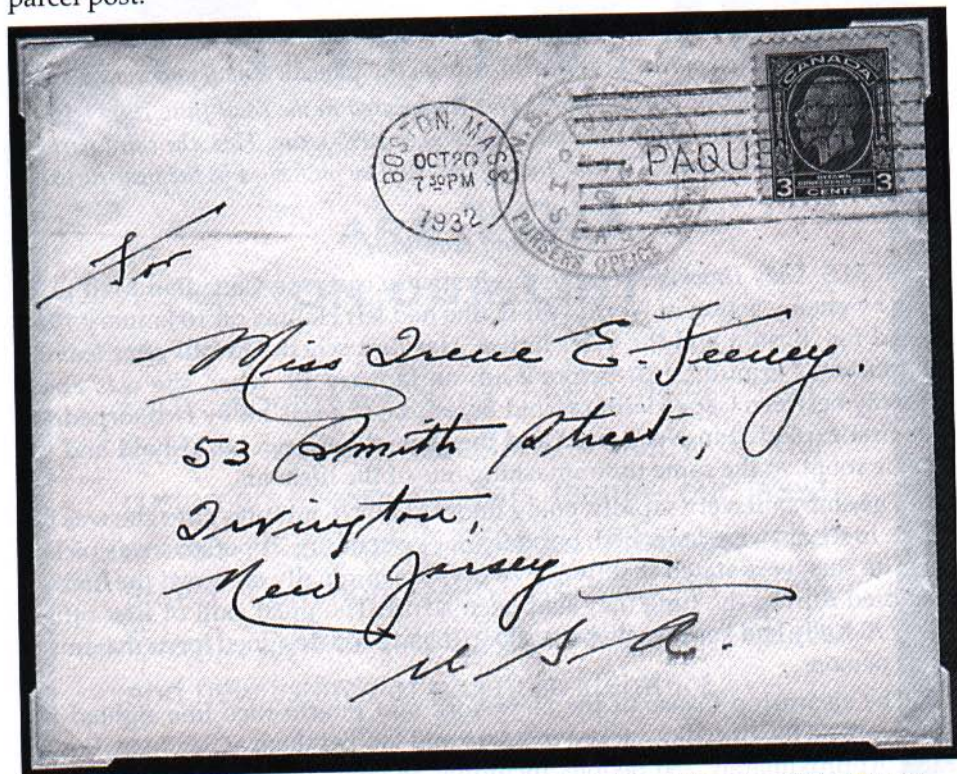 parcel post.
BOSTON, MASS
OCT 20
7 30 PM
1932
PURSER'S OFFICE
PAQUE
CANADA
OTTAWA
CONFERENCE
3 CENTS 3
For
Miss Irene E. Feeney.
53 Smith Street.,
Irvington,
New Jersey
U S A.